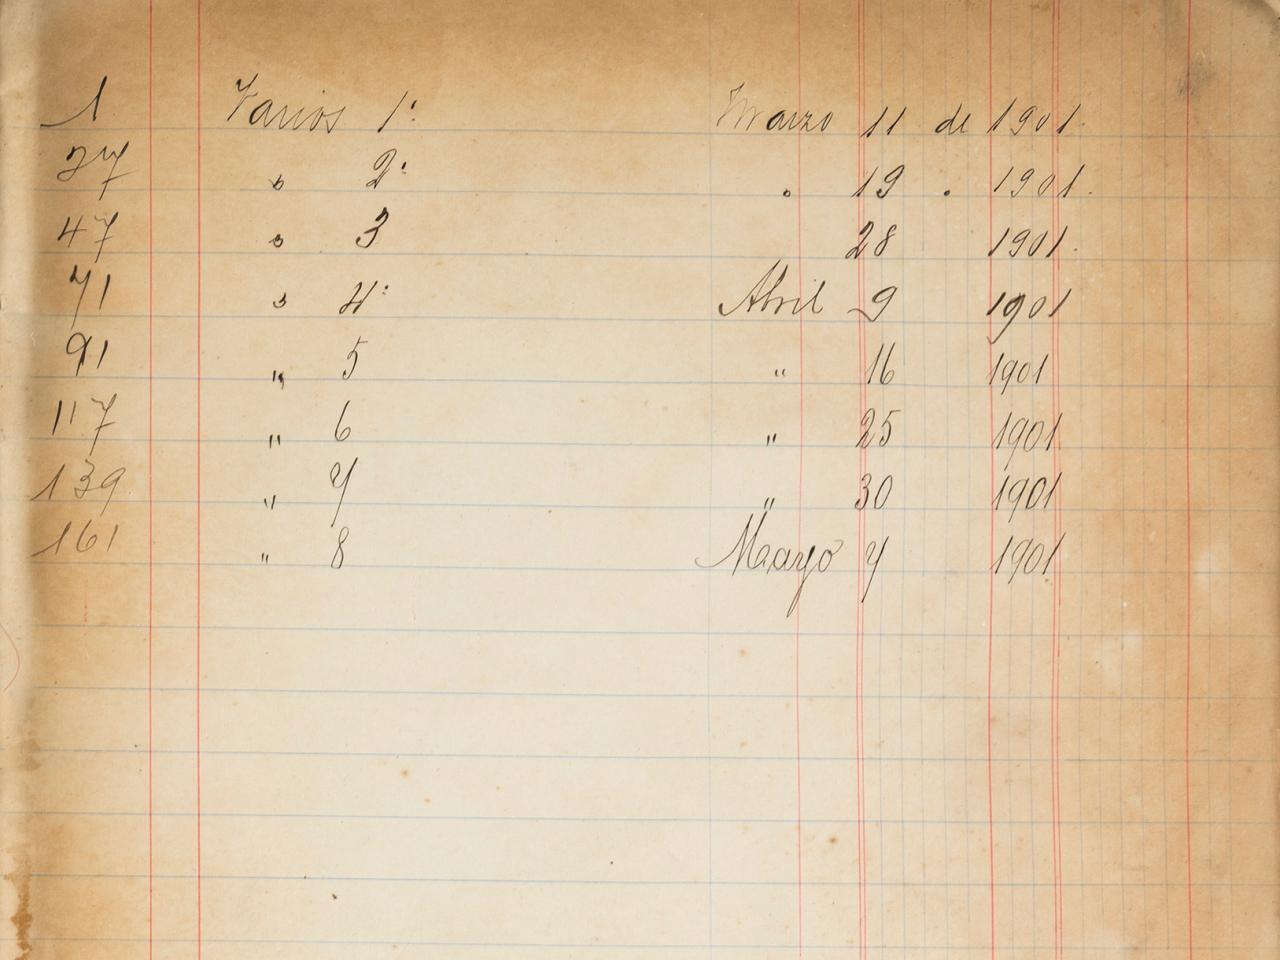 1 Varios 1º Marzo 11 de 1901.
27 " 2º " 19 " 1901.
47 " 3 28 1901.
71 " 4º Abril 9 1901
91 " 5 " 16 1901
117 " 6 " 25 1901
139 " 7 " 30 1901
161 " 8 Mayo 7 1901